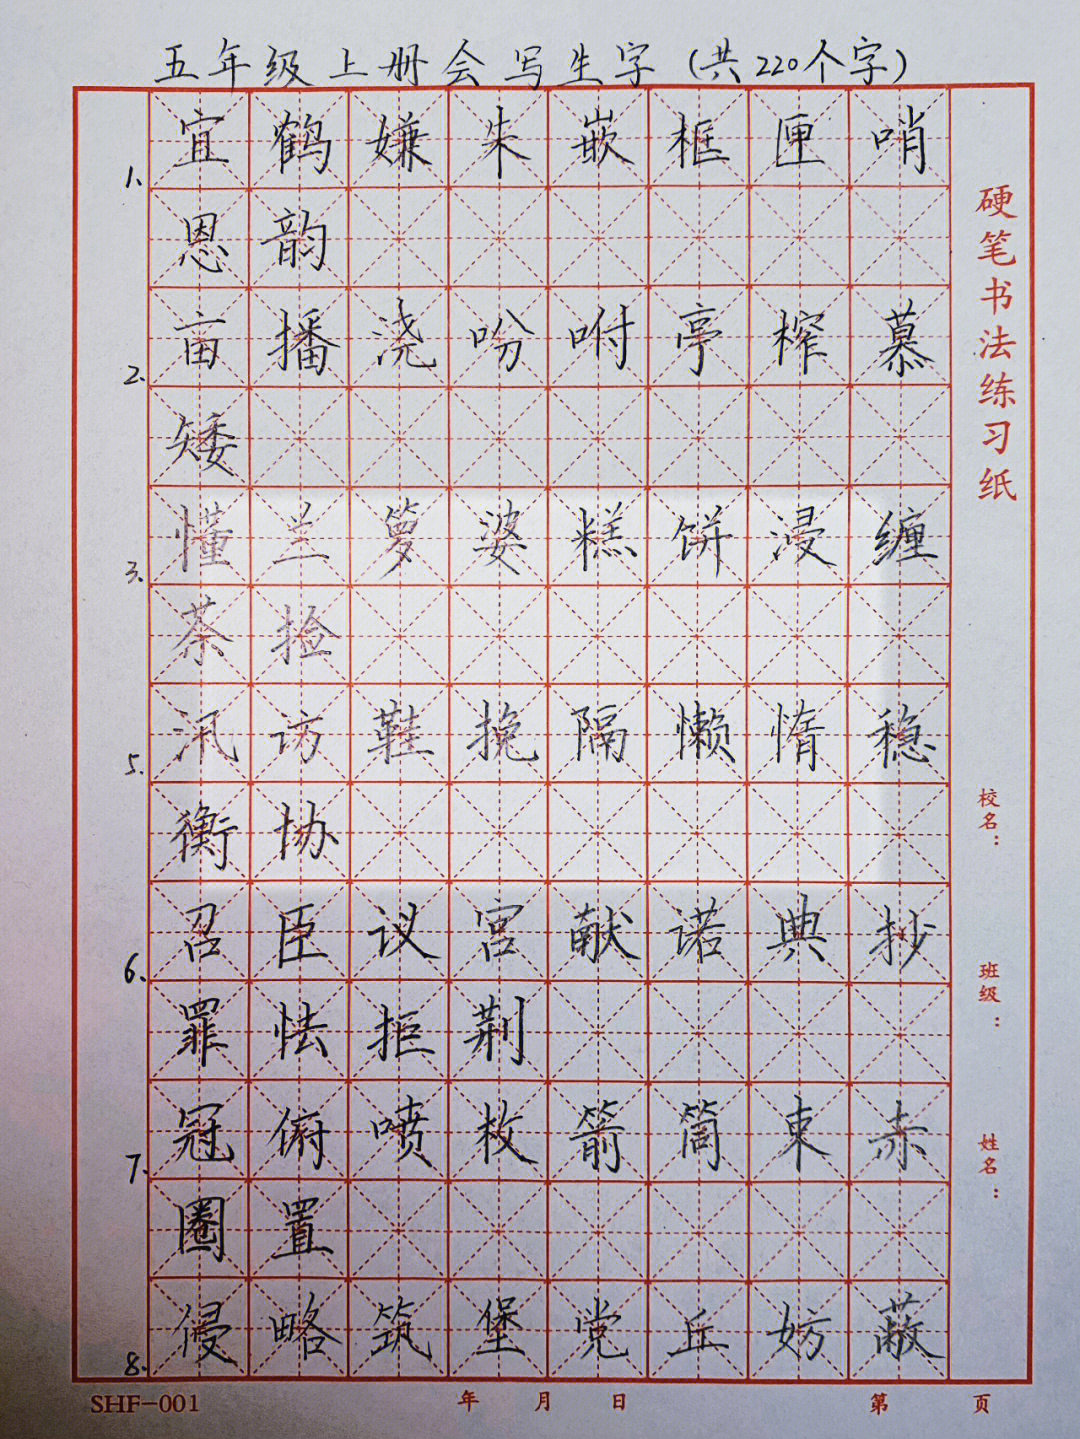 五年级上册会写生字(共220个字)
1. 宜鹤嫌朱嵌框匣哨
恩韵
2. 亩播浇吩咐亭榨慕
矮
3. 懂兰箩婆糕饼浸缠
茶捡
5. 汛访鞋挽隔懒惰稳
衡协
6. 召臣议宫献诺典抄
罪怯拒荆
7. 冠俯喷枚箭筒束赤
圈置
8. 侵略筑堡党丘妨蔽
硬笔书法练习纸
校名：
班级：
姓名：
SHF-001 年 月 日 第 页